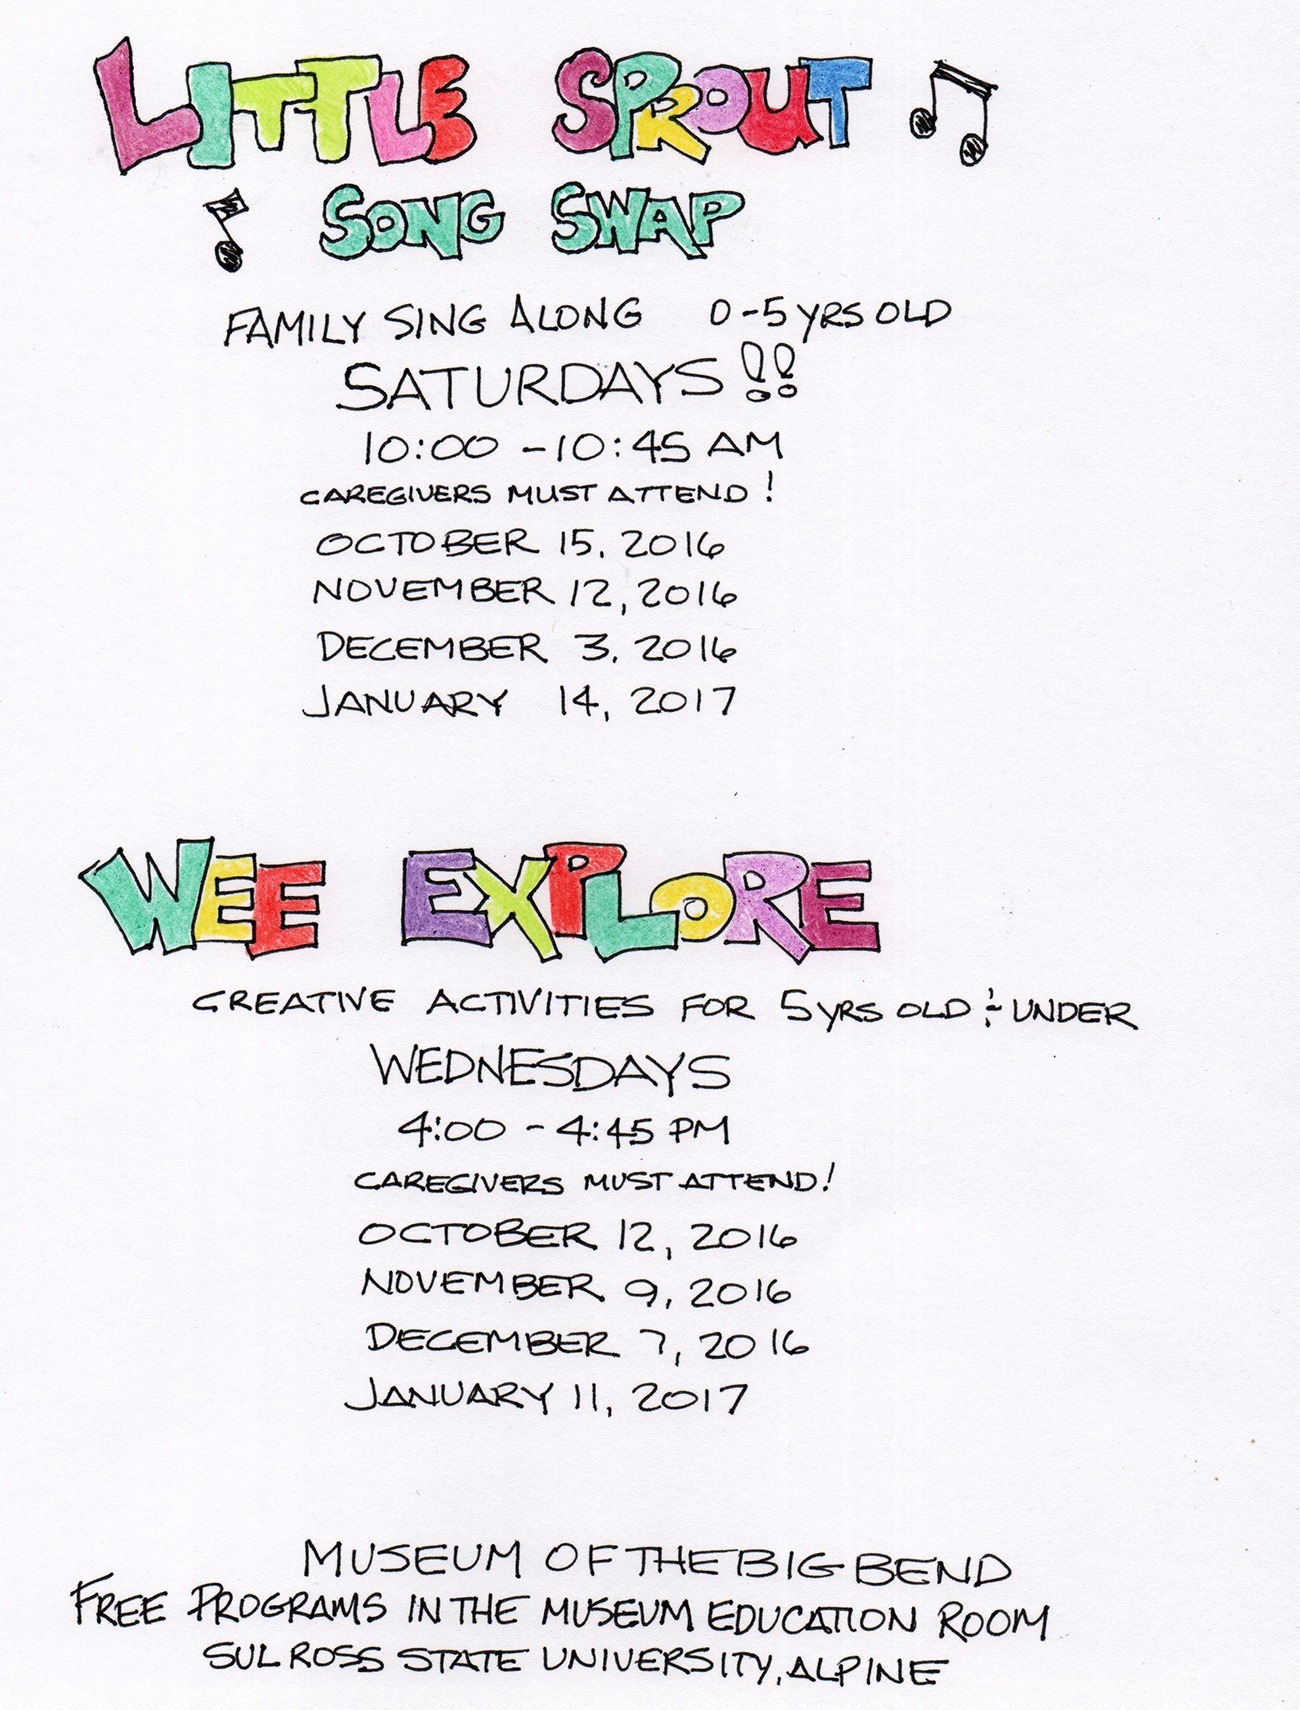 LITTLE SPROUT
SONG SWAP
FAMILY SING ALONG 0-5 YRS OLD
SATURDAYS!!
10:00 - 10:45 AM
CAREGIVERS MUST ATTEND!
OCTOBER 15, 2016
NOVEMBER 12, 2016
DECEMBER 3, 2016
JANUARY 14, 2017
WEE EXPLORE
CREATIVE ACTIVITIES FOR 5 YRS OLD & UNDER
WEDNESDAYS
4:00 - 4:45 PM
CAREGIVERS MUST ATTEND!
OCTOBER 12, 2016
NOVEMBER 9, 2016
DECEMBER 7, 2016
JANUARY 11, 2017
MUSEUM OF THE BIG BEND
FREE PROGRAMS IN THE MUSEUM EDUCATION ROOM
SUL ROSS STATE UNIVERSITY, ALPINE